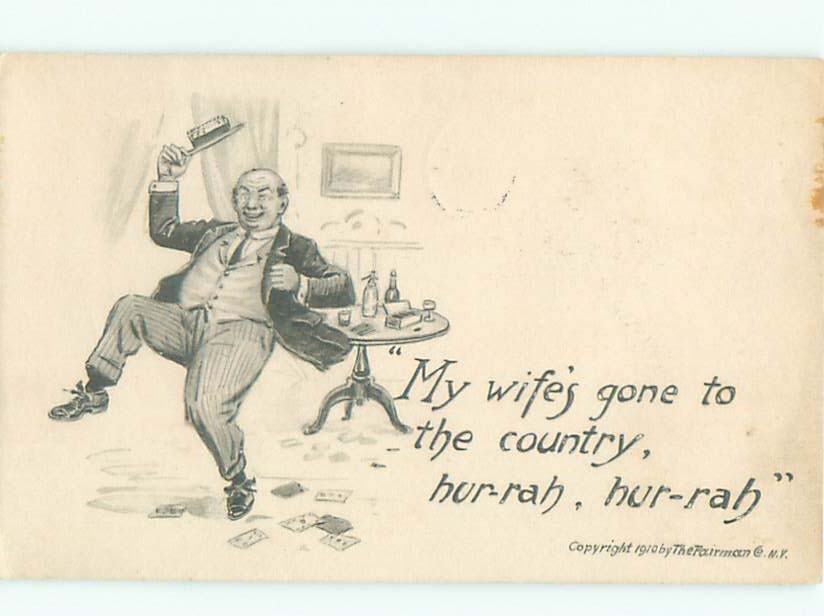 "My wife's gone to
the country,
hur-rah, hur-rah"
Copyright 1910 by The Fairman Co. N.Y.